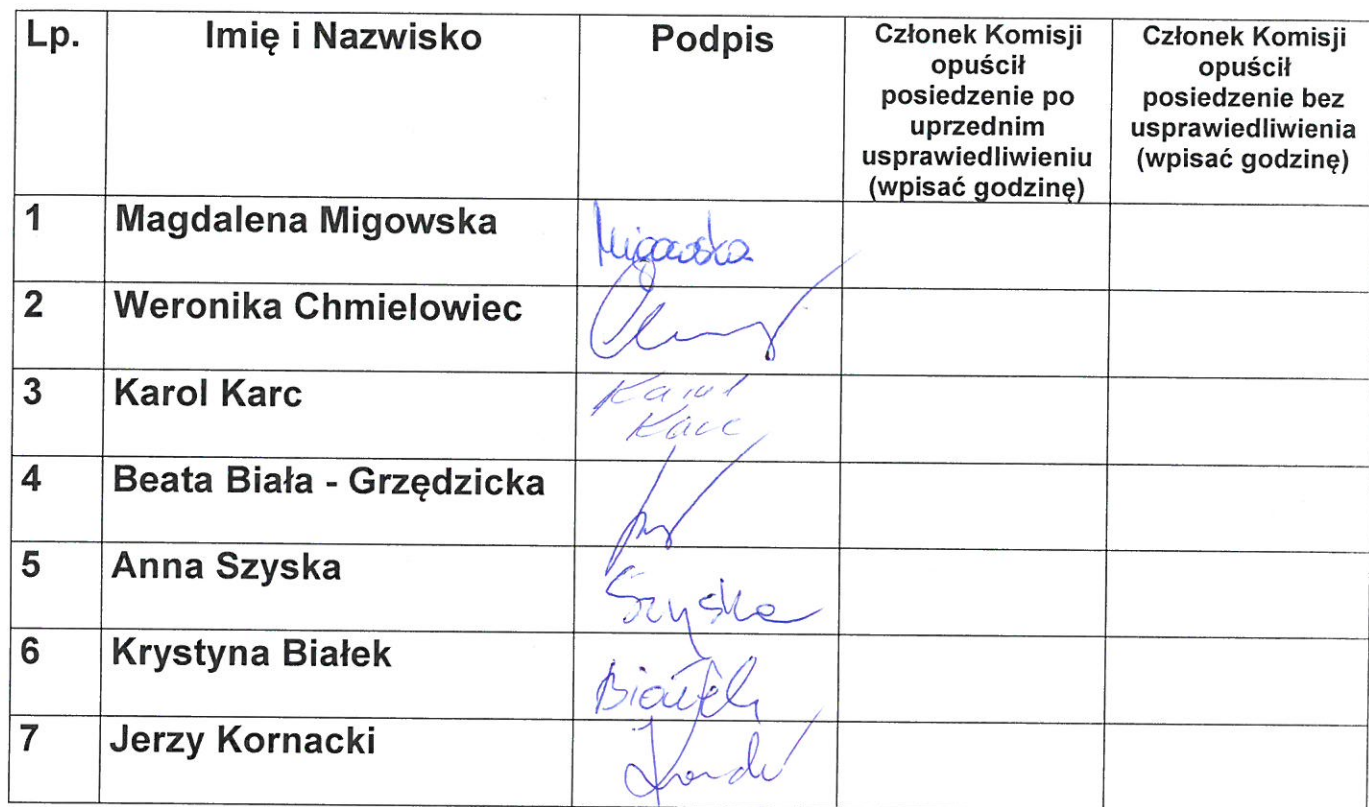 Lp. Imię i Nazwisko Podpis Członek Komisji opuścił posiedzenie po uprzednim usprawiedliwieniu (wpisać godzinę) Członek Komisji opuścił posiedzenie bez usprawiedliwienia (wpisać godzinę)
1 Magdalena Migowska Migowska
2 Weronika Chmielowiec
3 Karol Karc Karol Karc
4 Beata Biała - Grzędzicka
5 Anna Szyska Szyska
6 Krystyna Białek Białek
7 Jerzy Kornacki